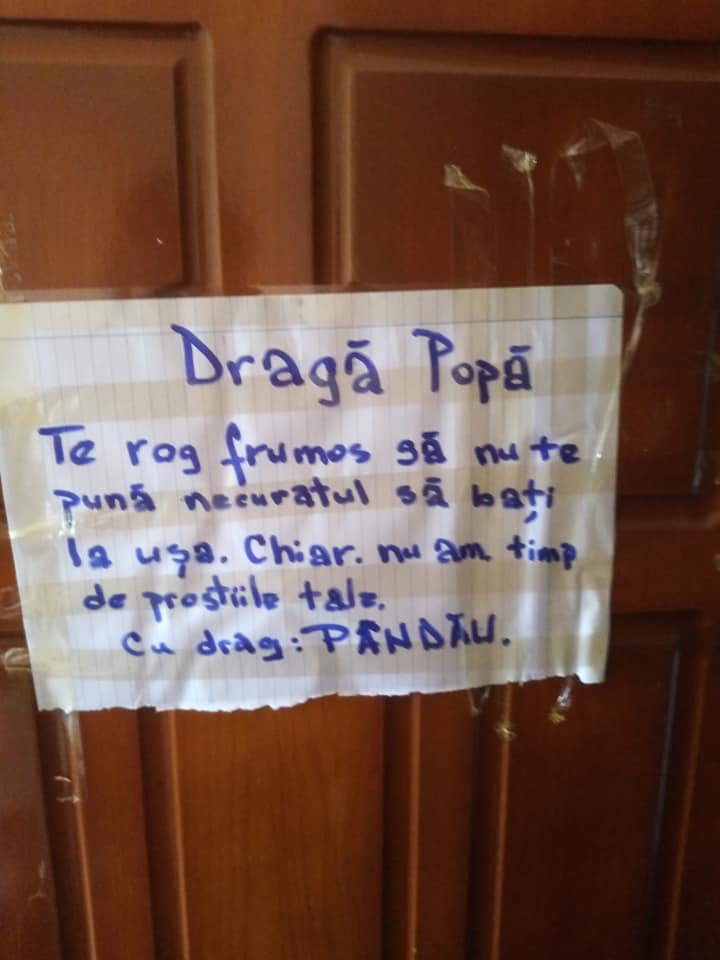 Dragă Popă
Te rog frumos să nu te
pună necuratul să bați
la ușa. Chiar. nu am timp
de prostiile tale.
Cu drag: PÂNDĂU.